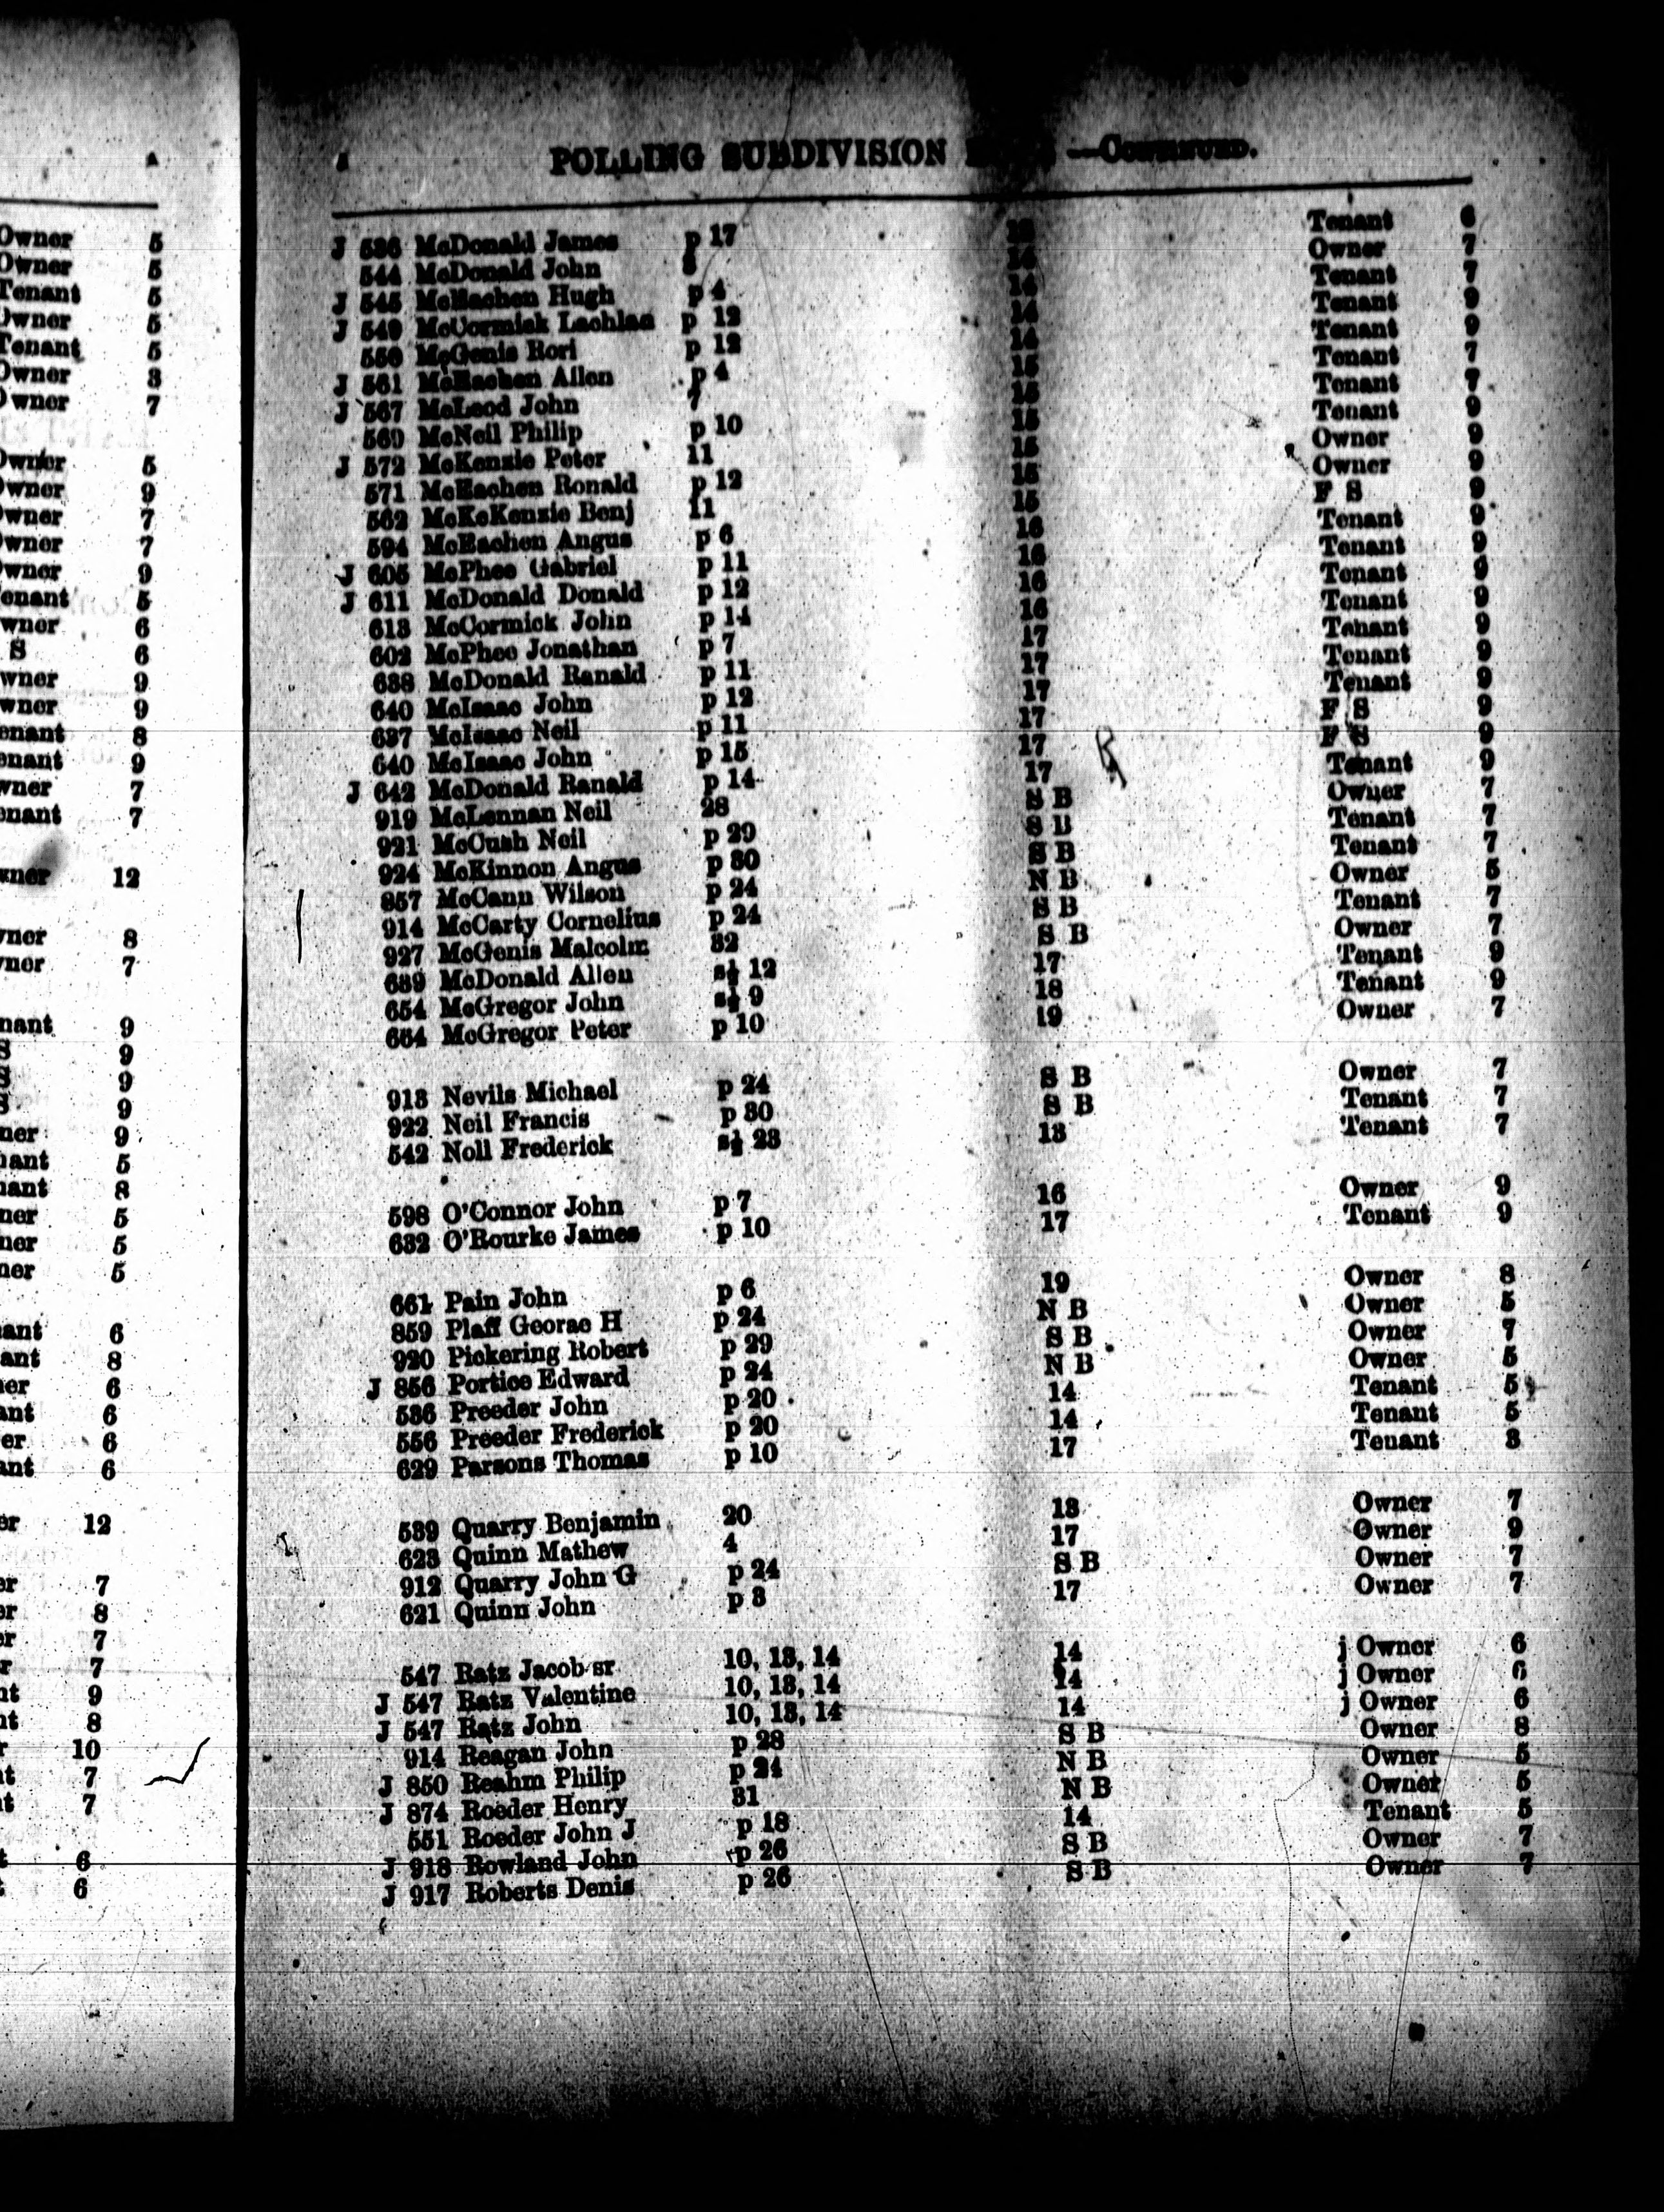 Owner 5
Owner 5
Tenant 5
Owner 5
Tenant 5
Owner 3
Owner 7
Owner 5
wner 9
wner 7
wner 7
wner 9
enant 5
wner 6
S 6
wner 9
wner 9
enant 8
enant 9
wner 7
enant 7
wner 12
ner 8
ner 7
nant 9
S 9
S 9
S 9
ner 9
ant 5
nant 8
ner 5
ner 5
ner 5
ant 6
ant 8
er 6
ant 6
er 6
ant 6
er 12
er 7
er 8
er 7
r 7
nt 9
nt 8
r 10
nt 7
nt 7
t 6
t 6
POLLING SUBDIVISION —CONTINUED.
J 536 McDonald James p 17 Tenant 6
544 McDonald John 14 Owner 7
J 545 McEachen Hugh p 4 14 Tenant 7
J 549 McCormick Lachlan p 12 14 Tenant 9
550 McGenis Rori p 12 14 Tenant 9
J 561 McEachen Allen p 4 15 Tenant 7
J 567 McLeod John 7 15 Tenant 7
569 McNeil Philip p 10 15 Tenant 9
J 572 McKenzie Peter 11 15 Owner 9
571 McEachen Ronald p 12 15 Owner 9
562 McKeKenzie Benj 11 15 F S 9
594 McEachen Angus p 6 16 Tenant 9
J 605 McPhee Gabriel p 11 16 Tenant 9
J 611 McDonald Donald p 12 16 Tenant 9
613 McCormick John p 14 16 Tenant 9
602 McPhee Jonathan p 7 17 Tenant 9
638 McDonald Ranald p 11 17 Tenant 9
640 McIsaac John p 12 17 Tenant 9
637 McIsaac Neil p 11 17 F S 9
640 McIsaac John p 15 17 F S 9
J 642 McDonald Ranald p 14 17 Tenant 9
919 McLennan Neil 28 S B Owner 7
921 McCush Neil p 29 S B Tenant 7
924 McKinnon Angus p 30 S B Tenant 7
857 McCann Wilson p 24 N B Owner 5
914 McCarty Cornelius p 24 S B Tenant 7
927 McGenis Malcolm 32 S B Owner 7
639 McDonald Allen s½ 12 17 Tenant 9
654 McGregor John s½ 9 18 Tenant 9
664 McGregor Peter p 10 19 Owner 7
913 Nevils Michael p 24 S B Owner 7
922 Neil Francis p 30 S B Tenant 7
542 Noll Frederick s½ 23 13 Tenant 7
598 O'Connor John p 7 16 Owner 9
632 O'Rourke James p 10 17 Tenant 9
661 Pain John p 6 19 Owner 8
859 Plaff Georae H p 24 N B Owner 5
920 Pickering Robert p 29 S B Owner 7
J 856 Portice Edward p 24 N B Owner 5
536 Preeder John p 20 14 Tenant 5
556 Preeder Frederick p 20 14 Tenant 5
629 Parsons Thomas p 10 17 Tenant 8
539 Quarry Benjamin 20 13 Owner 7
623 Quinn Mathew 4 17 Owner 9
912 Quarry John G p 24 S B Owner 7
621 Quinn John p 3 17 Owner 7
547 Ratz Jacob sr 10, 13, 14 14 j Owner 6
J 547 Ratz Valentine 10, 13, 14 14 j Owner 6
J 547 Ratz John 10, 13, 14 14 j Owner 6
914 Reagan John p 28 S B Owner 8
J 850 Reahm Philip p 24 N B Owner 5
J 874 Roeder Henry 31 N B Owner 5
551 Roeder John J p 18 14 Tenant 5
J 918 Rowland John p 26 S B Owner 7
J 917 Roberts Denis p 26 S B Owner 7